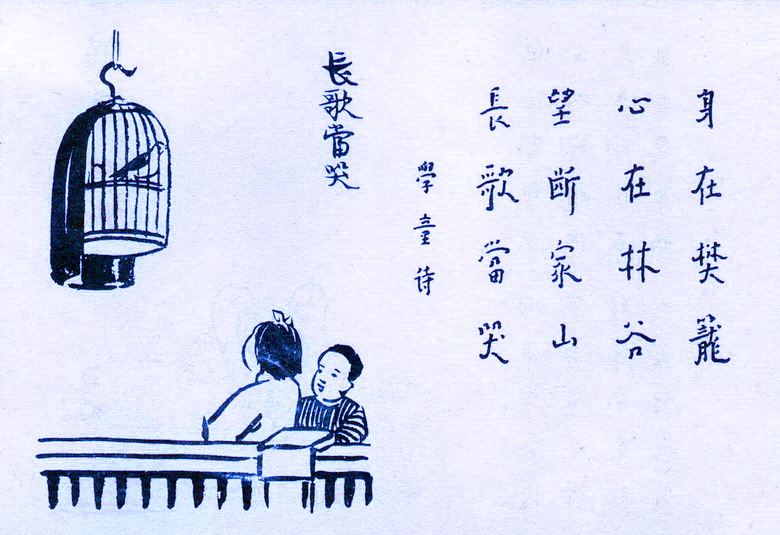 身在樊籠
心在林谷
望斷家山
長歌當哭
學童詩
長歌當哭